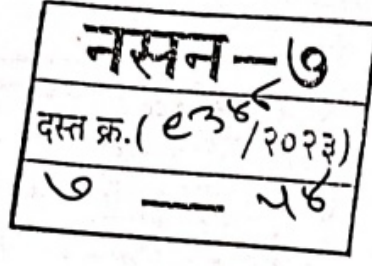 नसन-७
दस्त क्र.( /२०२३)
७ — ५४